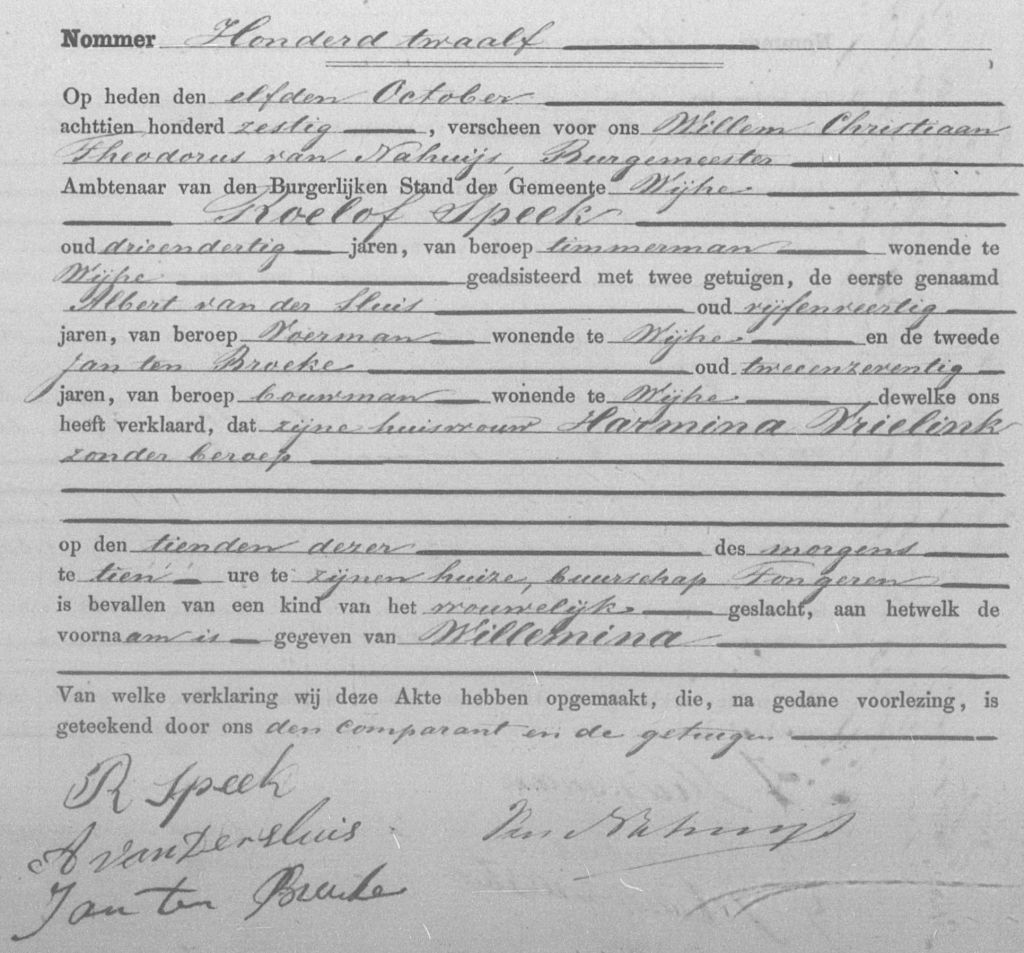 Nommer Honderd twaalf
Op heden den elfden October
achttien honderd zestig , verscheen voor ons Willem Christiaan
Theodorus van Nahuijs, Burgemeester
Ambtenaar van den Burgerlijken Stand der Gemeente Wijhe
Roelof Speek
oud drieendertig jaren, van beroep timmerman wonende te
Wijhe geadsisteerd met twee getuigen, de eerste genaamd
Albert van der Sluis oud vijfenveertig
jaren, van beroep Voerman wonende te Wijhe en de tweede
Jan ten Broeke oud tweeenzeventig
jaren, van beroep bouwman wonende te Wijhe dewelke ons
heeft verklaard, dat zijne huisvrouw Harmina Vrielink
zonder beroep
op den tienden dezer des morgens
te tien ure te zijnen huize, buurschap Tongeren
is bevallen van een kind van het vrouwelijk geslacht, aan hetwelk de
voornaam is gegeven van Willemina
Van welke verklaring wij deze Akte hebben opgemaakt, die, na gedane voorlezing, is
geteekend door ons den comparant en de getuigen
R Speek
A van Der Sluis
Van Nahuijs
Jan ten Broeke